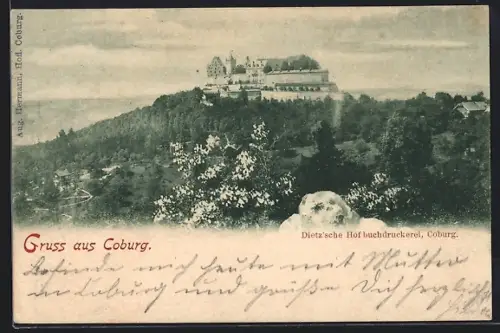 Aug. Hermann, Hofl. Coburg.
Gruss aus Coburg.
Dietz'sche Hofbuchdruckerei, Coburg.
Befinde mich heute mit Mutter
in Coburg und grüße Dich herzlich